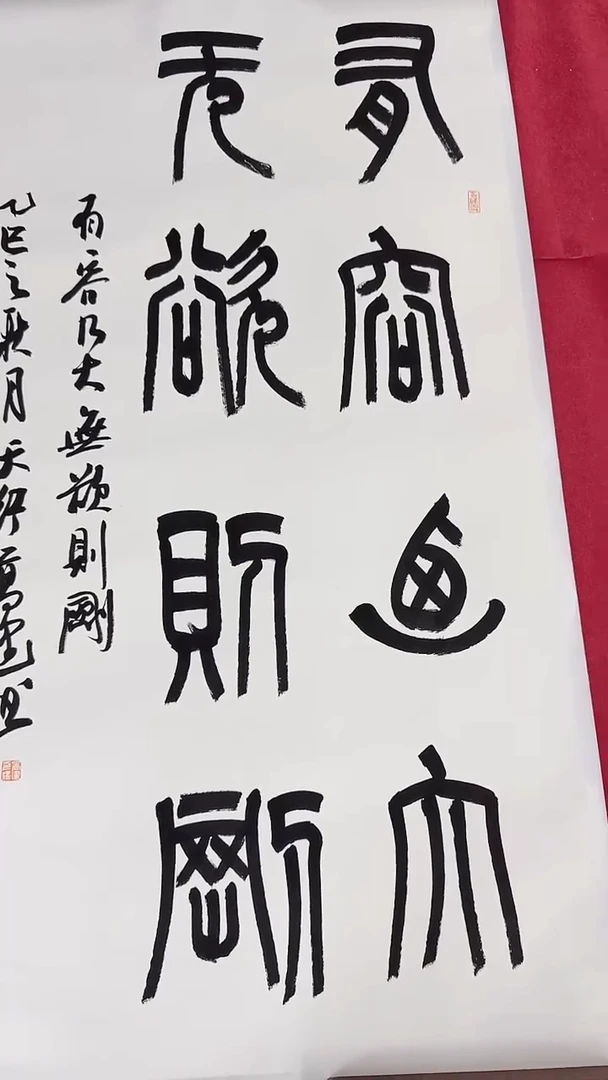 有容迺大
无欲則剛
有容乃大無欲則剛
乙巳之秋月天